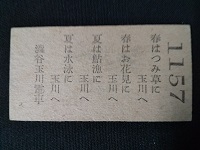 1157
春はつみ草に
玉川へ
春はお花見に
玉川へ
夏は鮎漁に
玉川へ
夏は水泳に
玉川へ
澁谷玉川電車